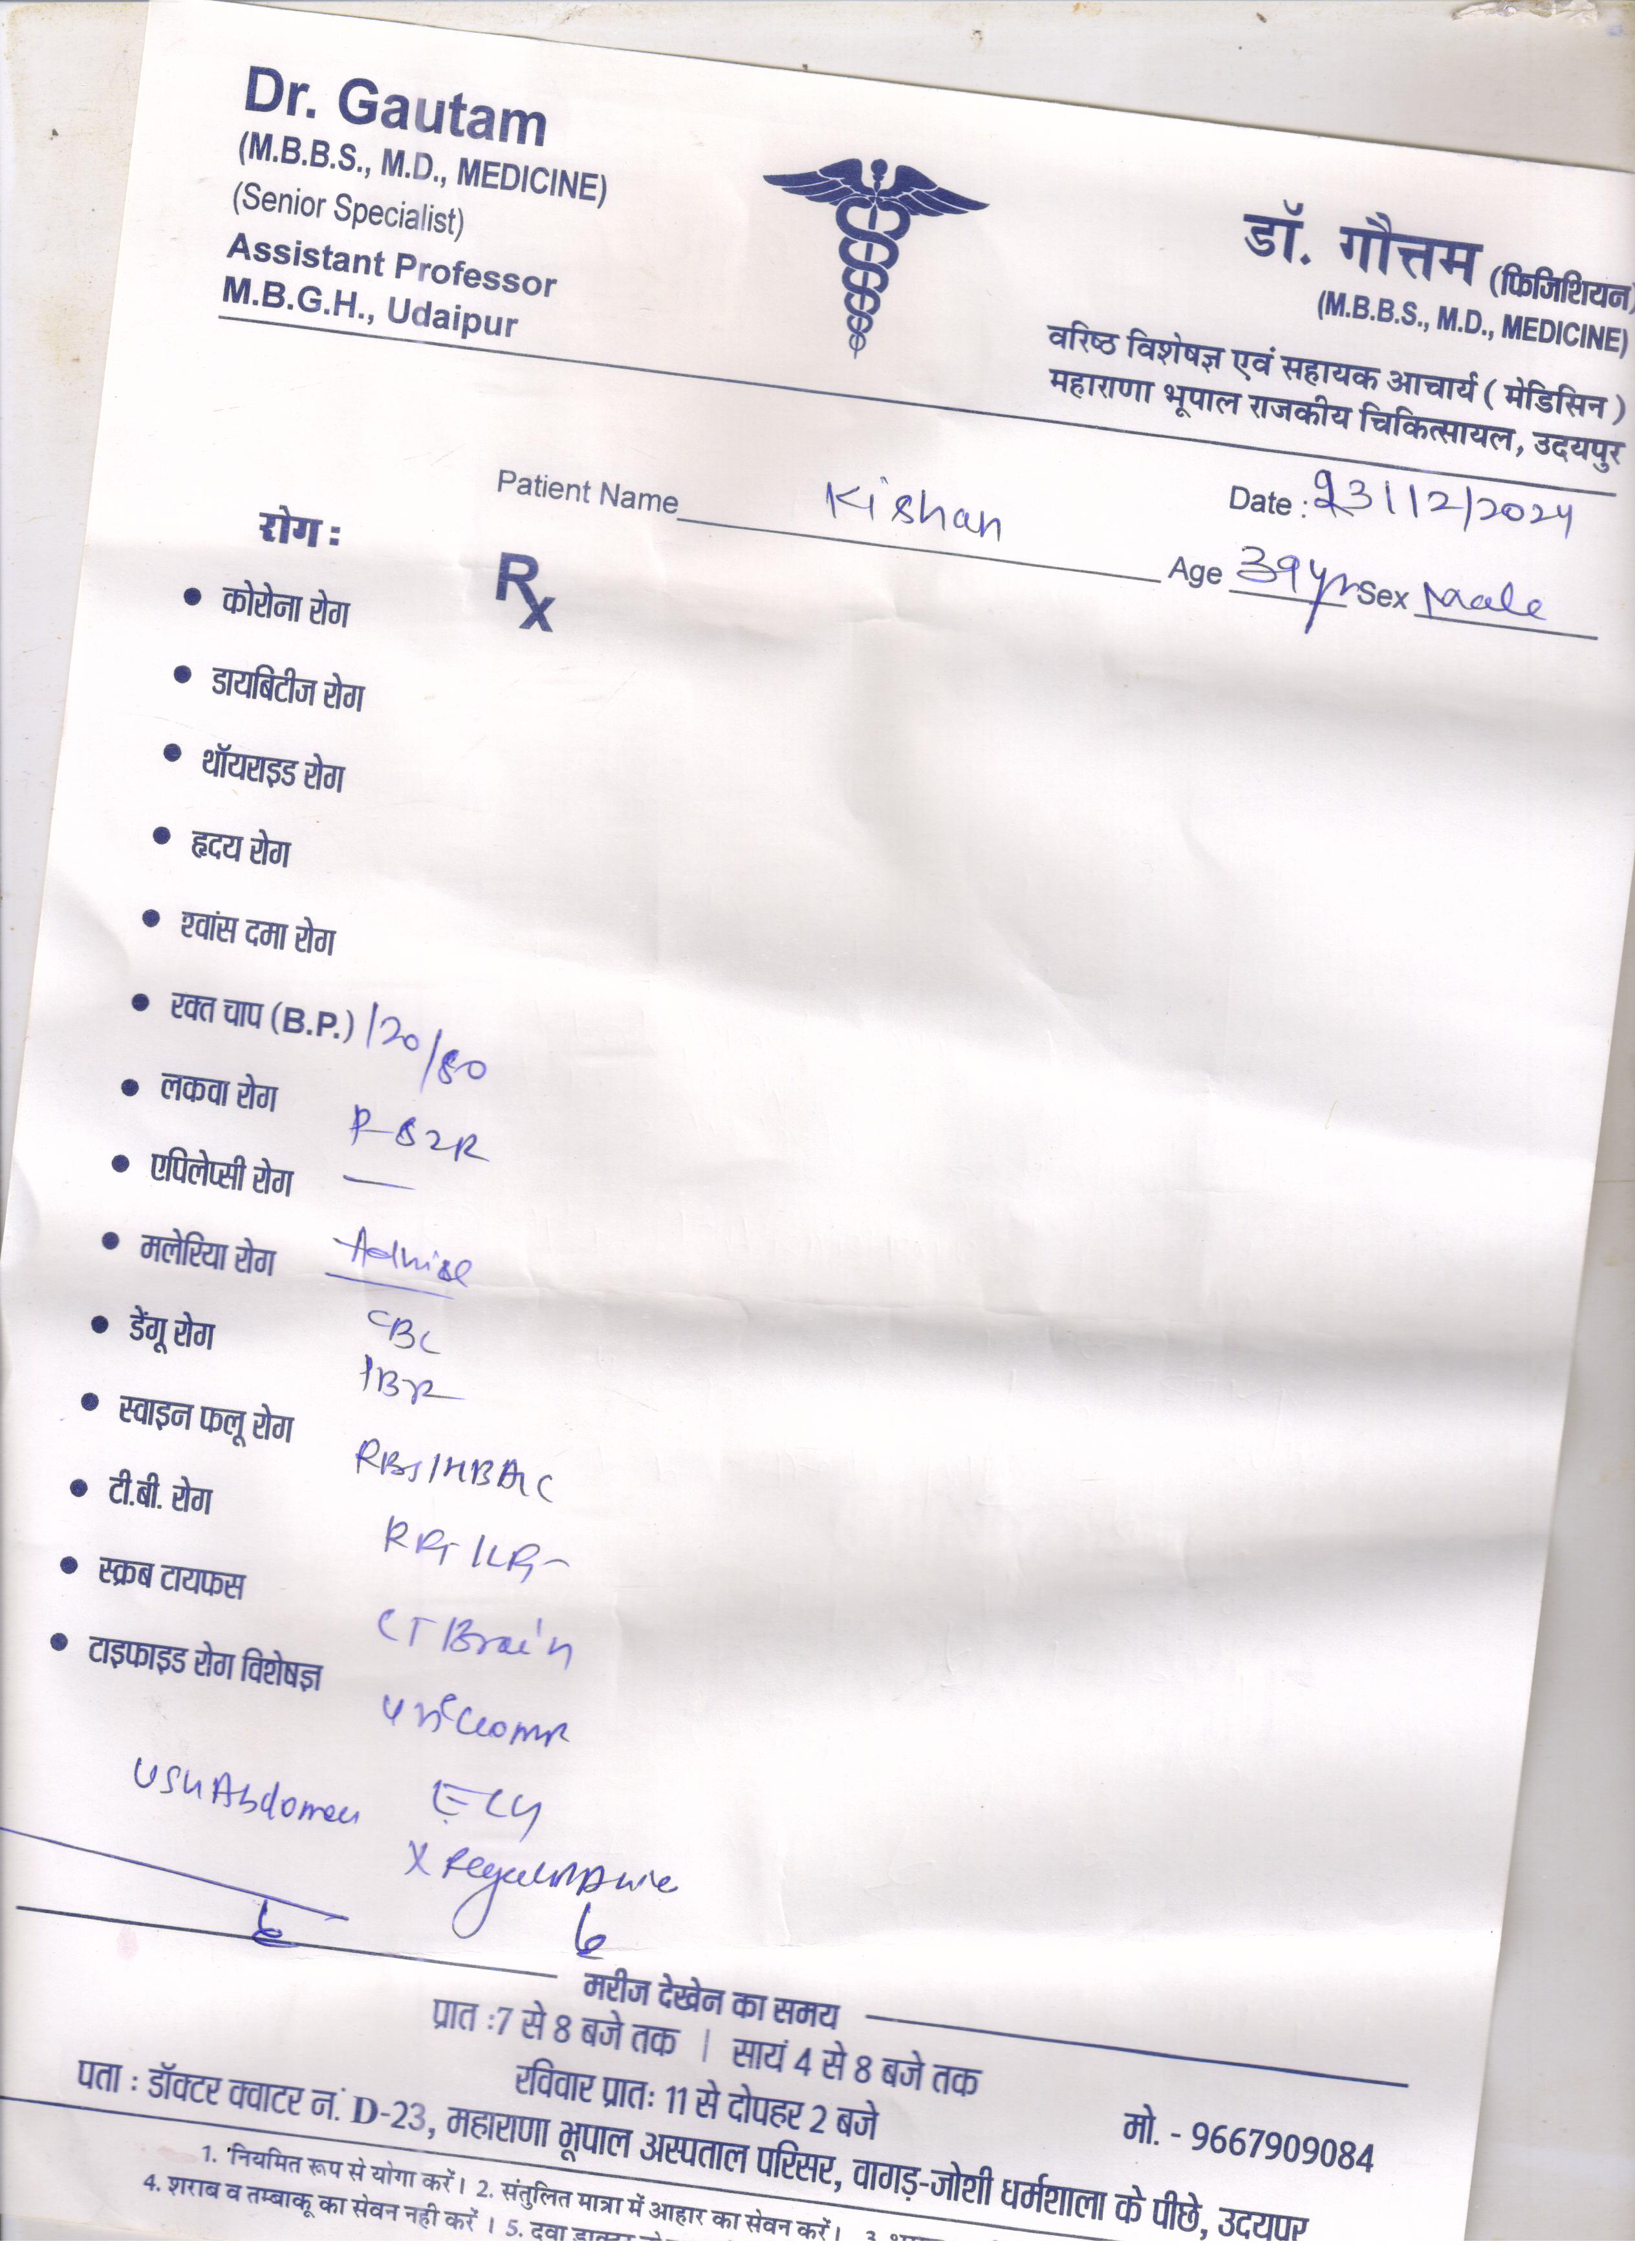 Dr. Gautam
(M.B.B.S., M.D., MEDICINE)
(Senior Specialist)
Assistant Professor
M.B.G.H., Udaipur
डॉ. गौत्तम (फिजिशियन)
(M.B.B.S., M.D., MEDICINE)
वरिष्ठ विशेषज्ञ एवं सहायक आचार्य ( मेडिसिन )
महाराणा भूपाल राजकीय चिकित्सायल, उदयपुर
Patient Name Kishan
Date : 23/12/2024
Age 39yr Sex Male
Rx
रोग :
• कोरोना रोग
• डायबिटीज रोग
• थॉयराइड रोग
• हृदय रोग
• श्वांस दमा रोग
• रक्त चाप (B.P.) 120/80
• लकवा रोग
P-82R
• एपिलेप्सी रोग
• मलेरिया रोग
Advise
• डेंगू रोग
CBC
• स्वाइन फलू रोग
RBS/HBA1C
• टी.बी. रोग
• स्क्रब टायफस
CT Brain
• टाइफाइड रोग विशेषज्ञ
USG Abdomen
ECG
मरीज देखेन का समय
प्रात :7 से 8 बजे तक | सायं 4 से 8 बजे तक
रविवार प्रातः 11 से दोपहर 2 बजे
मो. - 9667909084
पता : डॉक्टर क्वाटर नं. D-23, महाराणा भूपाल अस्पताल परिसर, वागड़-जोशी धर्मशाला के पीछे, उदयपुर
1. नियमित रूप से योगा करें। 2. संतुलित मात्रा में आहार का सेवन करें। 3.
4. शराब व तम्बाकू का सेवन नही करें । 5. दवा